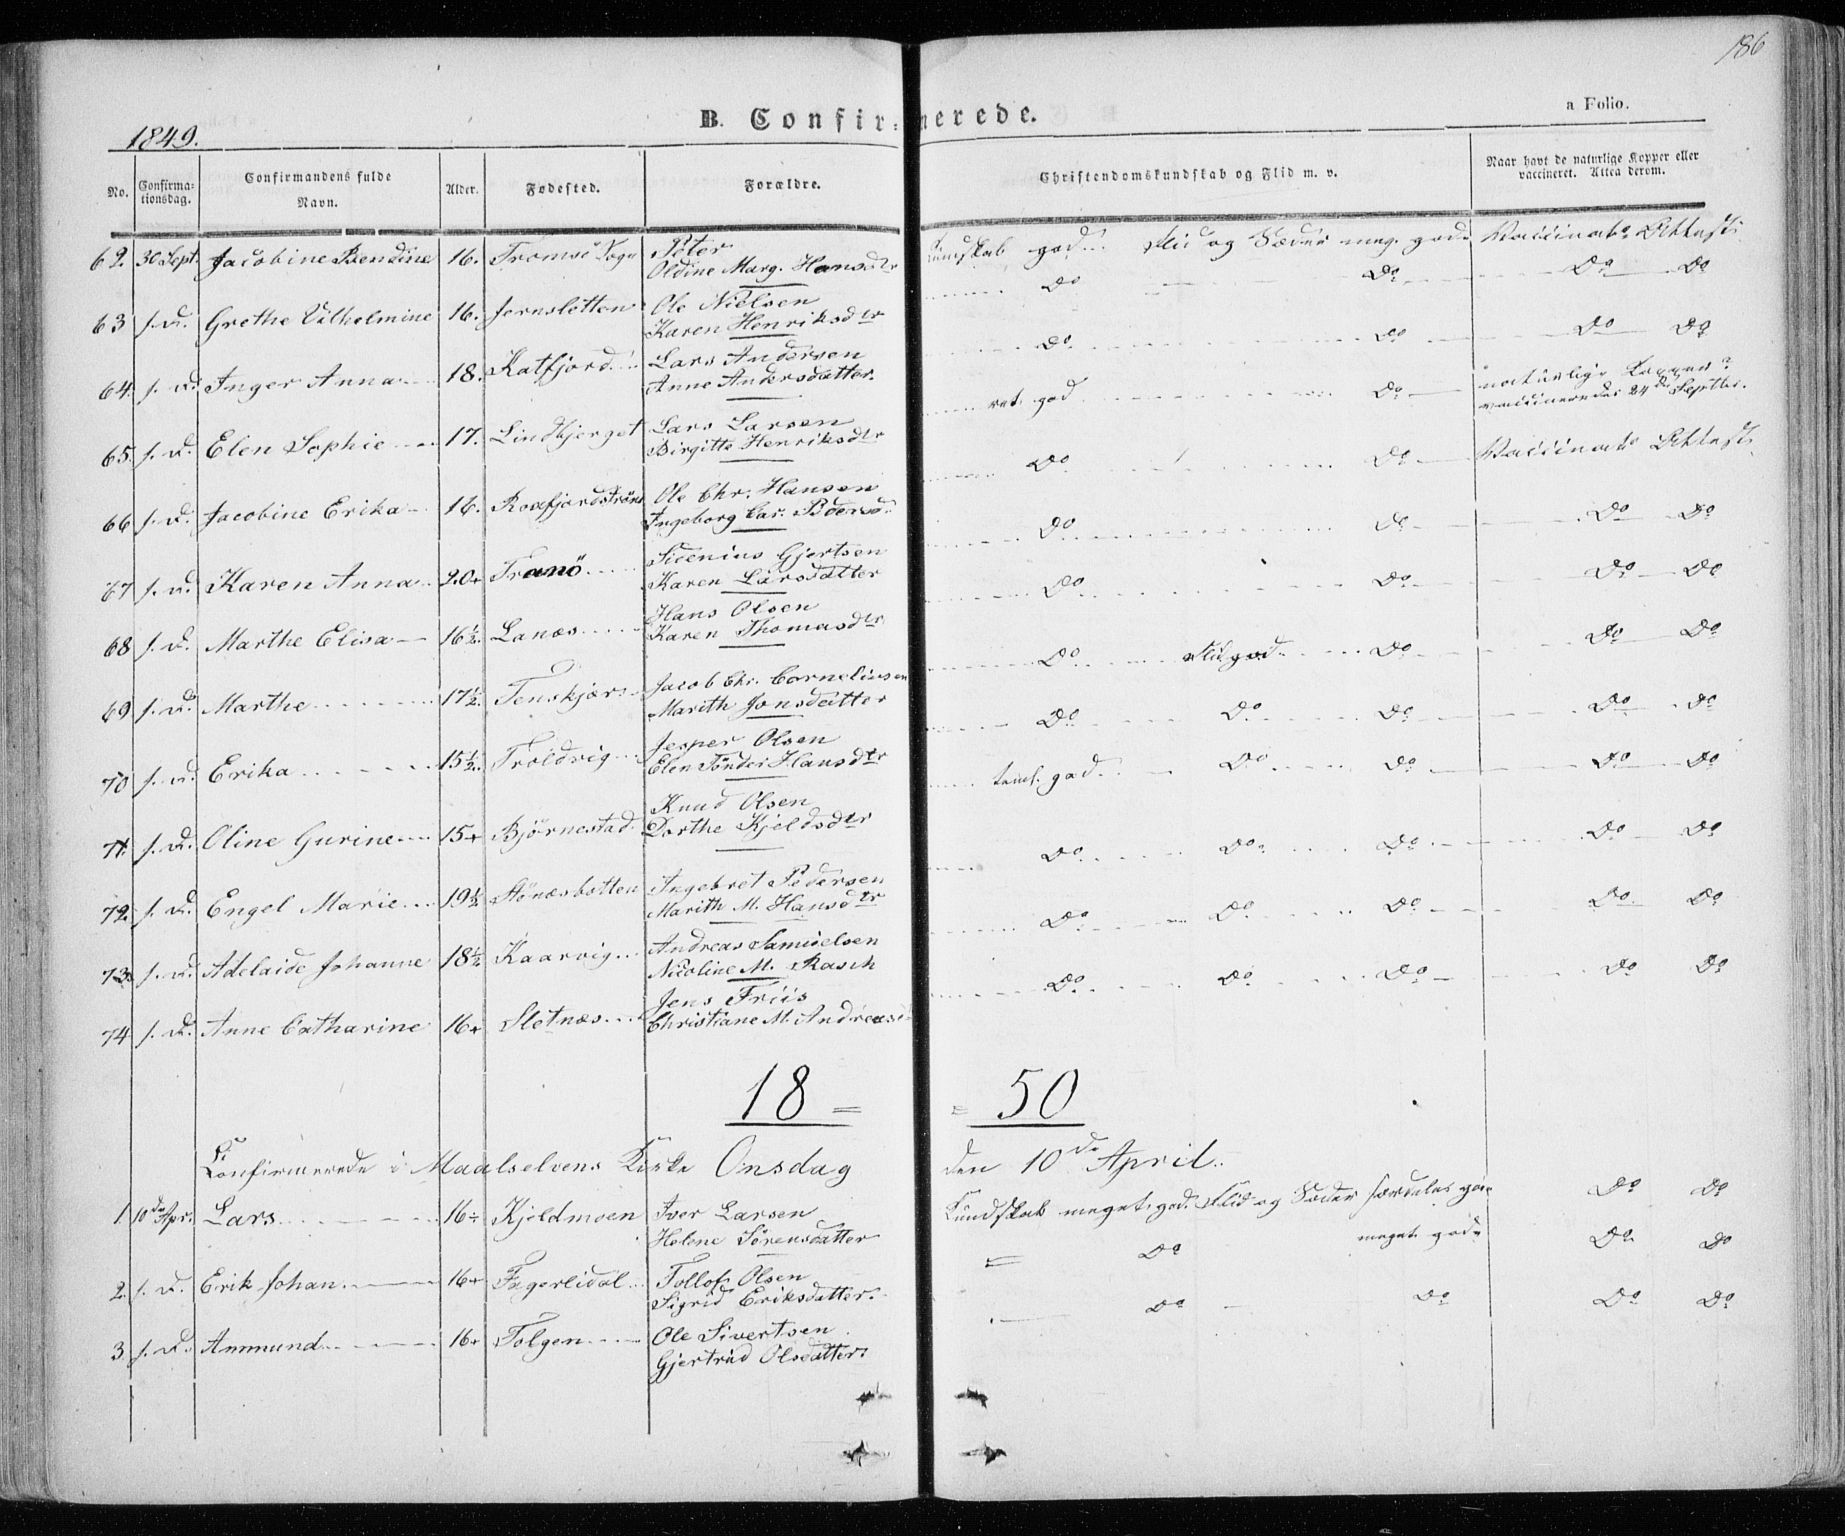 186
B. Confirmerede.
a Folio.
1849.
No. Confirmationsdag. Confirmandens fulde Navn. Alder. Fødested. Forældre. Christendomskundskab og Flid m. v. Naar havt de naturlige Kopper eller vaccineret. Attest derom.
62. 30 Sept. Jacobine Bendine 16. Tromsö Sogn Peter
Oldine Marg. Hansdtr Kundskab god. Flid og Sæder meg. gode Vaccinat. Attest.
63 s. D. Grethe Vilhelmine 16. Jernsletten Ole Nielsen
Karen Henriksdtr Do Do Do Do
64. s. D. Inger Anna 18. Katfjord Lars Andersen
Anne Andersdatter. Do Do Do Do
65. s. D. Elen Sophie 17. Lindbjerget Lars Larsen
Birgitte Henriksdtr ret god Do naturlige Kopper?
vaccineredes 24de Septbr.
66 s. D. Jacobine Erika 16. Ole Chr. Hansen
Ingeborg Car. Pedersd. Do Do Vaccinat. Attest
67 s. D. Karen Anna 20+ Tranö Sidenius Gjertsen
Karen Larsdatter Do Do Do Do
68 s. D. Marthe Elisa 16½. Lanæs Hans Olsen
Karen Thomasdtr Do Do Do Do
69 s. D. Marthe 17½. Tenskjær Jacob Chr. Corneliusen
Marith Jonsdatter Do Flid god Do Do Do
70 s. D. Erika 15½. Troldvig Jesper Olsen
Elen Tönder Hansdtr Do Do Do Do Do
71. s. D. Oline Gurine 15+ Björnestad Knud Olsen
Dorthe Kjeldsdtr teml. god Do Do Do Do
72. s. D. Engel Marie 19½ Stönæsbotten Ingebret Pedersen
Marith M. Hansdtr Do Do Do Do Do
73. s. D. Adelaide Johanne 18½ Kaarvig Andreas Samuelsen
Nicoline M. Rasch Do Do Do Do Do
74. s. D. Anne Catharine 16+ Sletnæs Jens Friis
Christiane M. Andreasd Do Do Do Do Do
18 = = 50
Confirmerede i Maalselvens Kirke Onsdag den 10de April.
1. 10de Apr. Lars 16÷ Kjeldmoen Iver Larsen
Helene Sörensdatter Kundskab meget god. Flid og Sæder særdeles gode Do Do
2. s. D. Erik Johan 16+ Fagerlidal Tollof Olsen
Sigrid Eriksdatter. = Do meget gode Do Do
3. s. D. Ammund 16+ Tolgen Ole Sivertsen
Gjertrud Olsdatter Do Do Do Do